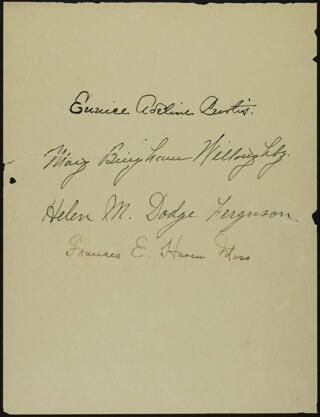 Eunice Adeline Curtis.
May Bingham Willoughby.
Helen M. Dodge Ferguson.
Frances E. Haven Moss